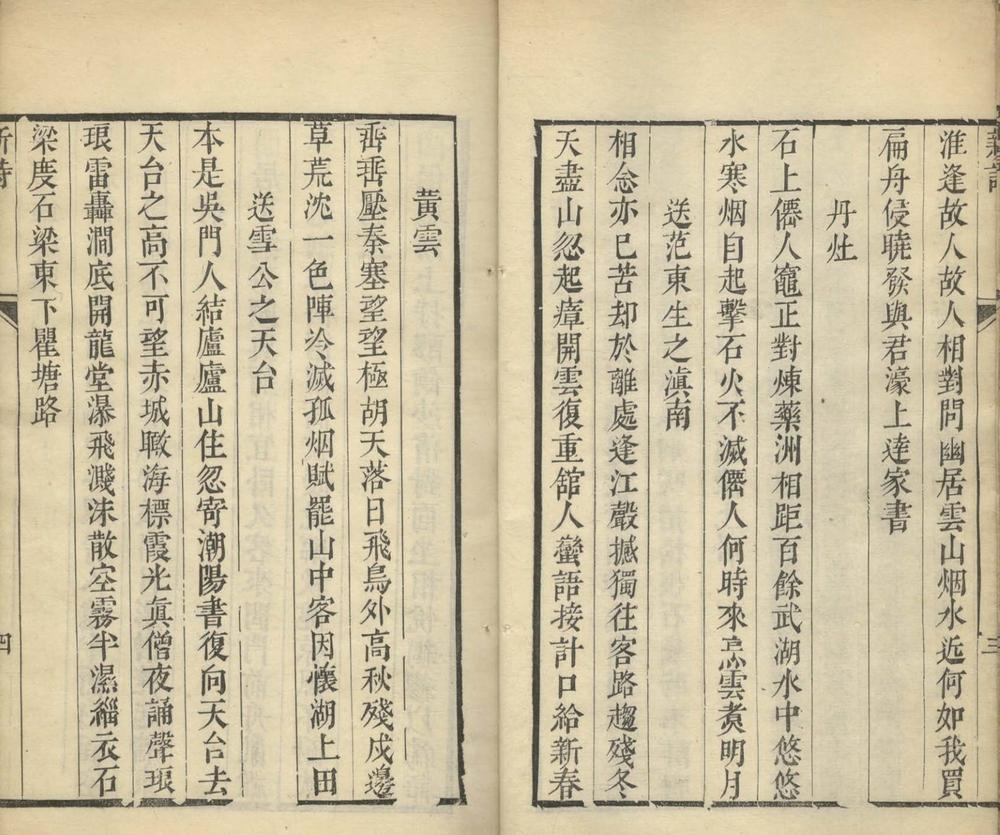 淮逢故人故人相對問幽居雲山烟水近何如我買
扁舟侵曉發與君濠上達家書
丹灶
石上僊人竈正對煉藥洲相距百餘武湖水中悠悠
水寒烟自起擊石火不滅僊人何時來烹雲煮明月
送范東生之滇南
相念亦已苦却於離處逢江聲撼獨往客路趨殘冬
天盡山忽起瘴開雲復重舘人蠻語接計口給新舂
三
黃雲
黃雲壓秦塞望望極胡天落日飛鳥外高秋殘戍邊
草荒沈一色陣冷滅孤烟賦罷山中客因懷湖上田
送雪公之天台
本是吳門人結廬廬山住忽寄潮陽書復向天台去
天台之高不可望赤城瞰海標霞光眞僧夜誦聲琅
琅雷轟澗底開龍堂瀑飛濺沫散空霧半濕緇衣石
梁度石梁東下瞿塘路
四